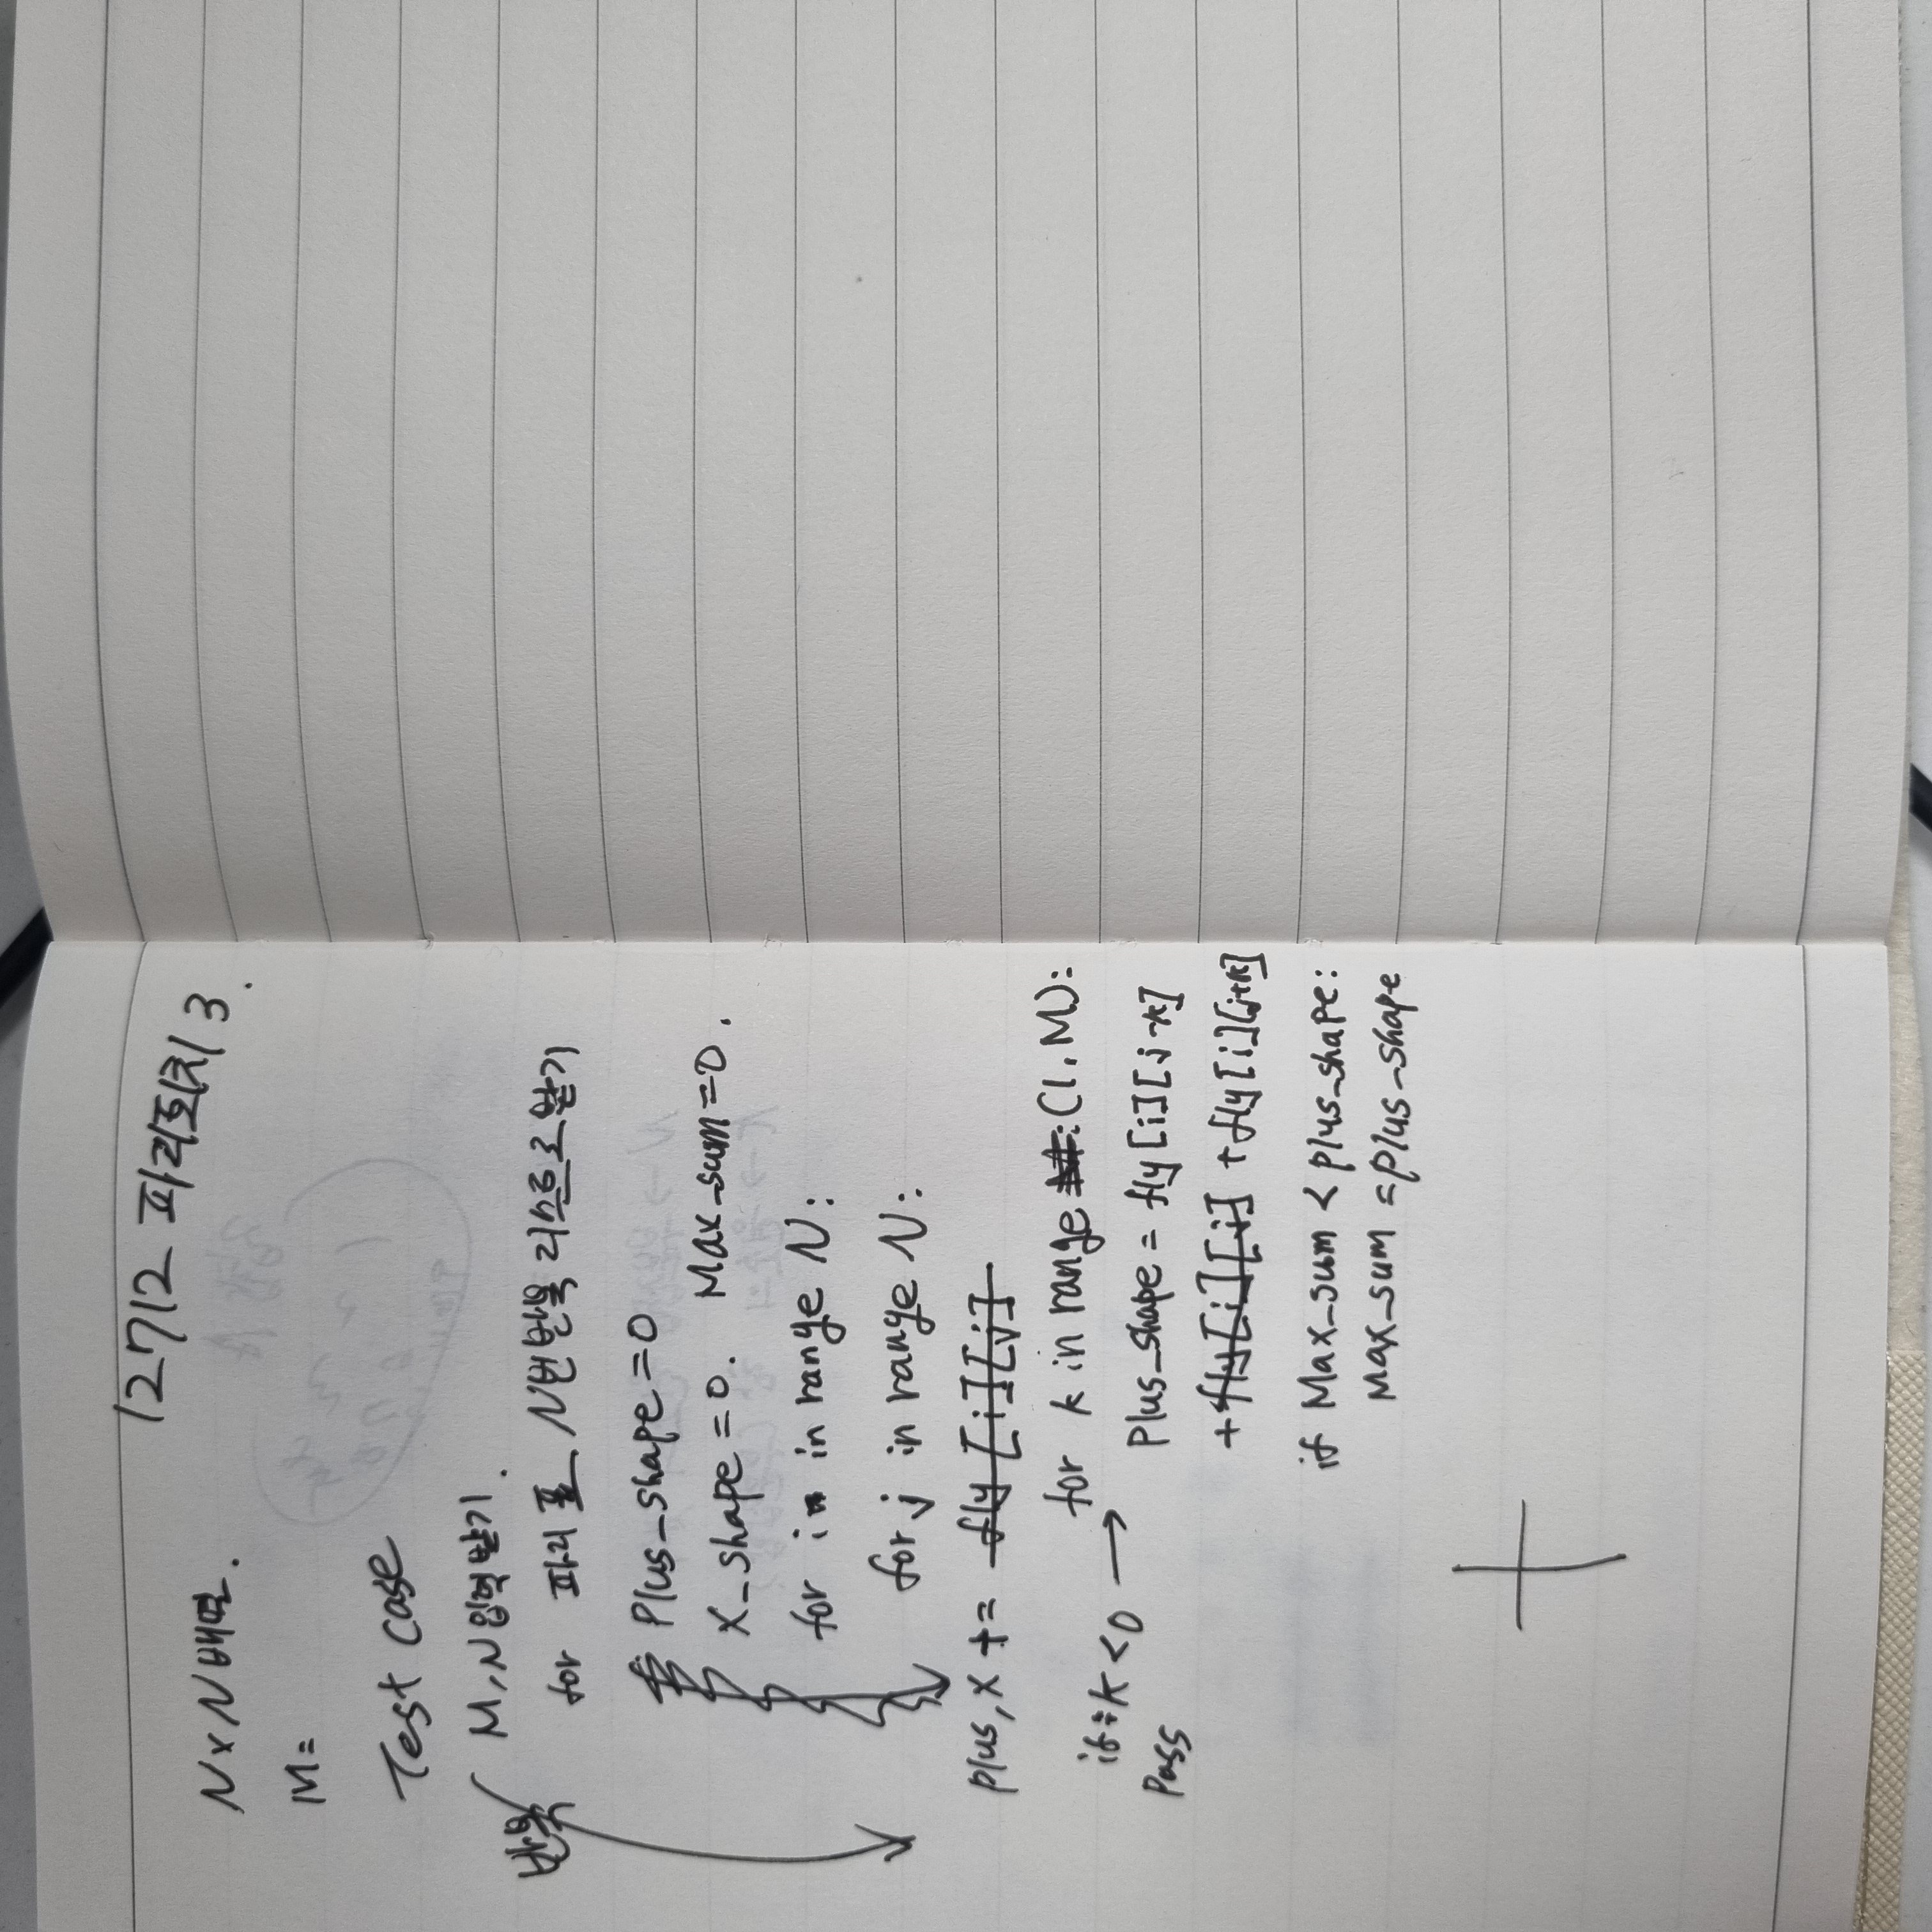 12712 파리퇴치 3.
N x N 배열.
M =
Test case
반복
M, N 입력받기.
for 파리 표 N번 반복 리스트로 받기
Plus_shape = 0
X_shape = 0. Max_sum = 0.
for i in range N:
for j in range N:
plus, x += fly [i][j]
for k in range M: (1, M):
if i-k < 0 →
Pass
Plus_shape = fly [i][j-k]
+ fly[i][j] + fly[i][j+k]
if Max_sum < plus_shape:
Max_sum = plus_shape